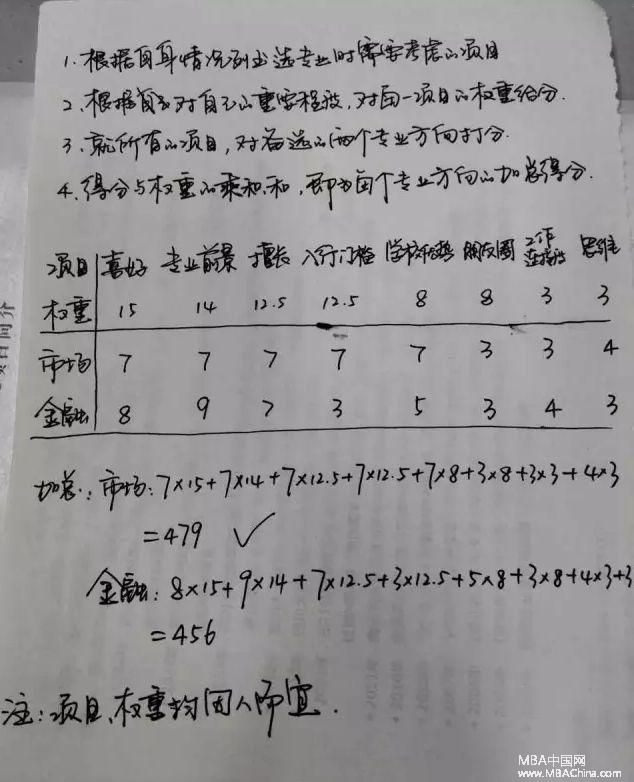 1. 根据自身情况列出选专业时需要考虑的项目
2. 根据项目对自己的重要程度,对每一项目的权重给分.
3. 就所有的项目,对备选的两个专业方向打分.
4. 得分与权重的乘积和,即为每个专业方向的加总得分.
项目 喜好 专业前景 擅长 入行门槛 学校 朋友圈 工作 思维
权重 15 14 12.5 12.5 8 8 3 3
市场 7 7 7 7 7 3 3 4
金融 8 9 7 3 5 3 4 3
加总: 市场: 7×15+7×14+7×12.5+7×12.5+7×8+3×8+3×3+4×3
=479 ✓
金融: 8×15+9×14+7×12.5+3×12.5+5×8+3×8+4×3+3
=456
注: 项目、权重均因人而宜.
MBA中国网
www.MBAChina.com